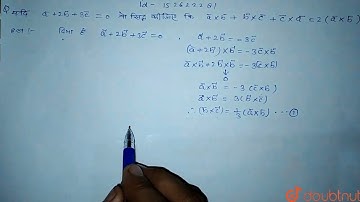 Id - 152629281
Q यदि a⃗ + 2b⃗ + 3c⃗ = 0 तो सिद्ध कीजिए कि a⃗×b⃗ + b⃗×c⃗ + c⃗×a⃗ = 2(
हल :- दिया है a⃗ + 2b⃗ + 3c⃗ = 0 , a⃗ + 2b⃗ = -3c⃗
(a⃗ + 2b⃗) × b⃗ = -3c⃗×b⃗
a⃗×b⃗ + 2b⃗×b⃗ = -3(c⃗×b⃗)
↓
0
a⃗×b⃗ = -3(c⃗×b⃗)
a⃗×b⃗ = 3(b⃗×c⃗)
∴ (b⃗×c⃗) = 1/3 (a⃗×b⃗) ---
doubtnut